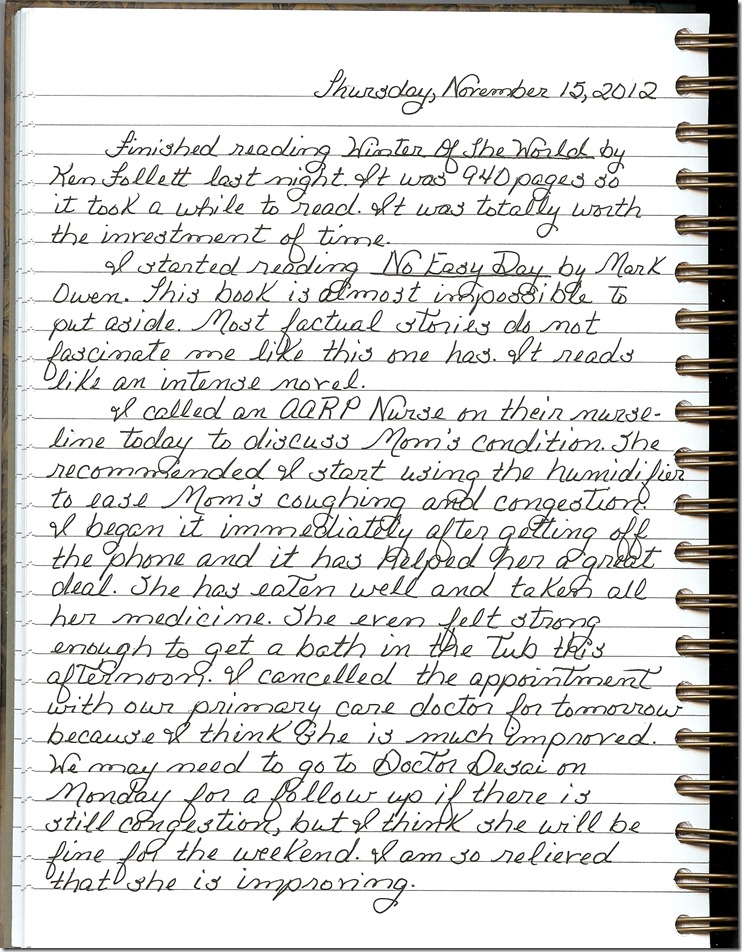 Thursday, November 15, 2012
Finished reading Winter Of The World by
Ken Follett last night. It was 940 pages so
it took a while to read. It was totally worth
the investment of time.
I started reading No Easy Day by Mark
Owen. This book is almost impossible to
put aside. Most factual stories do not
fascinate me like this one has. It reads
like an intense novel.
I called an AARP Nurse on their nurse-
line today to discuss Mom's condition. She
recommended I start using the humidifier
to ease Mom's coughing and congestion.
I began it immediately after getting off
the phone and it has helped her a great
deal. She has eaten well and taken all
her medicine. She even felt strong
enough to get a bath in the Tub this
afternoon. I cancelled the appointment
with our primary care doctor for tomorrow
because I think she is much improved.
We may need to go to Doctor Desai on
Monday for a follow up if there is
still congestion, but I think she will be
fine for the weekend. I am so relieved
that she is improving.